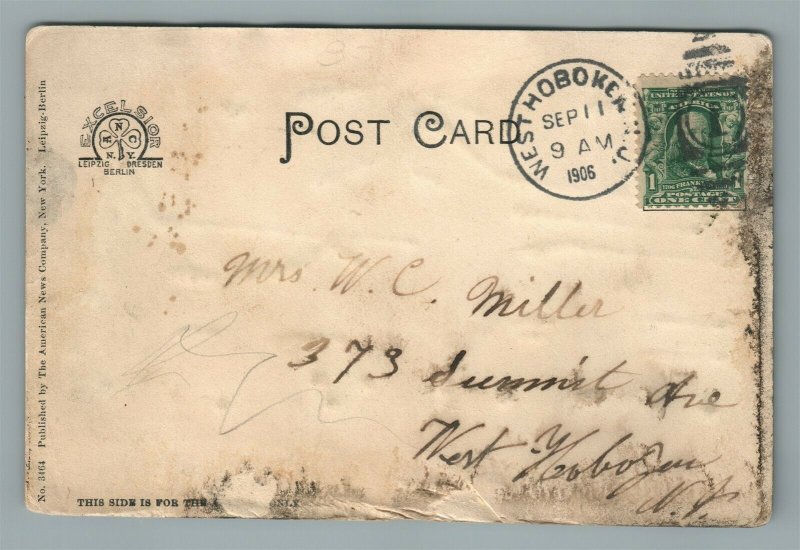 No. 3464 Published by The American News Company, New York. Leipzig-Berlin
EXCELSIOR
A N C
N.Y.
LEIPZIG DRESDEN
BERLIN
POST CARD
WEST HOBOKEN, N.J.
SEP 11
9 AM
1906
UNITED STATES OF
AMERICA
1 FRANKLIN
POSTAGE
ONE CENT
Mrs. W. C. Miller
373 Summit Ave
West Hoboken
N.J.
THIS SIDE IS FOR THE ONLY